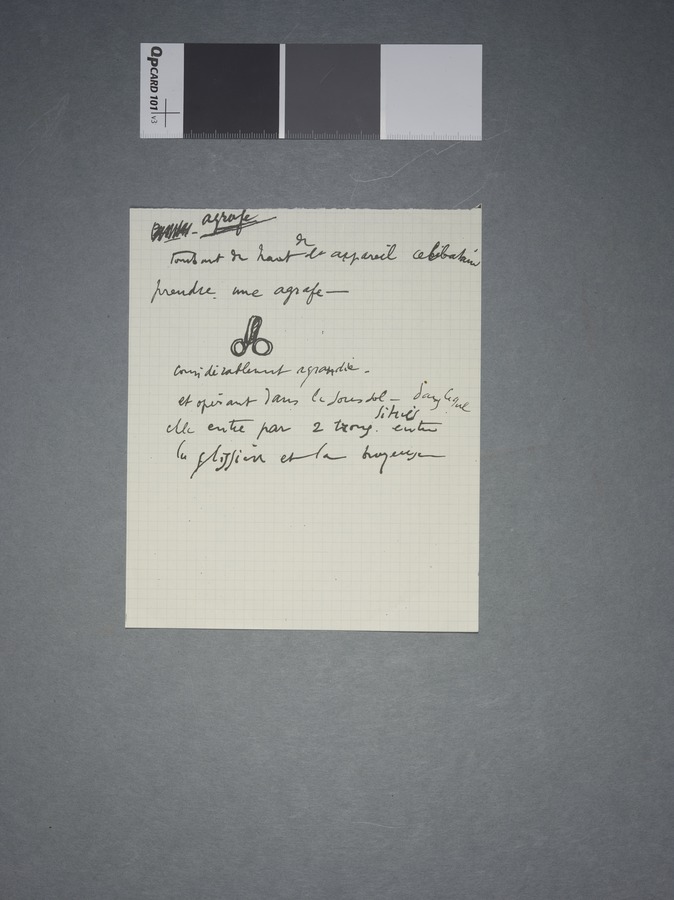 QPCARD 101 v3
agrafe
Tombant du haut de l'appareil célibataire
prendre une agrafe —
considérablement agrandie.
et opérant dans le sous sol —
elle entre par 2 trous situés entre
la glissière et la broyeuse